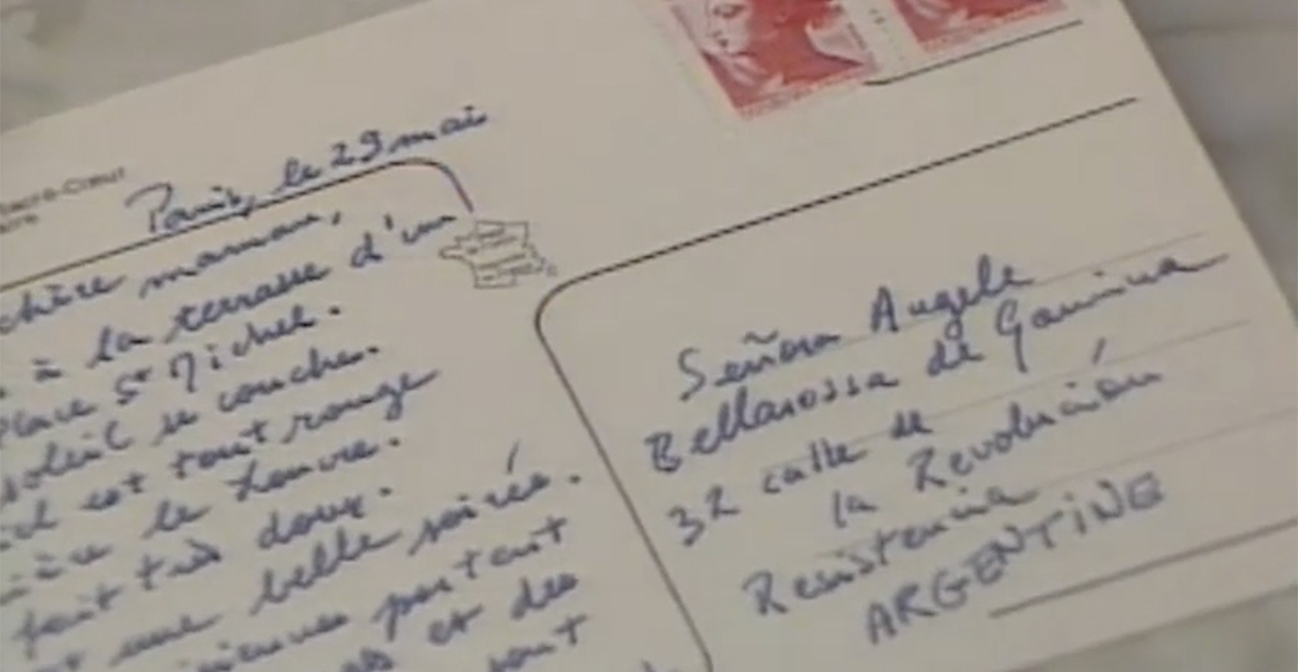 Sacré-Cœur
Paris, le 29 mai
chère maman,
à la terrasse d'un
Place St Michel.
soleil se couche.
ciel est tout rouge
le Louvre.
fait très doux.
une belle soirée.
portent
et des
sont
Señora Angela
Bellarossa de Gamina
32 calle de
la Revolución
Resistencia
ARGENTINE